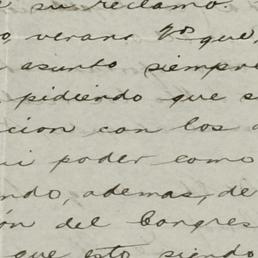 su reclamo.
o, verano Vds que,
asunto siempre
pidiendo que s
cion con los a
mi poder como
ndo, ademas, de
ón del Congres
que esto siendo